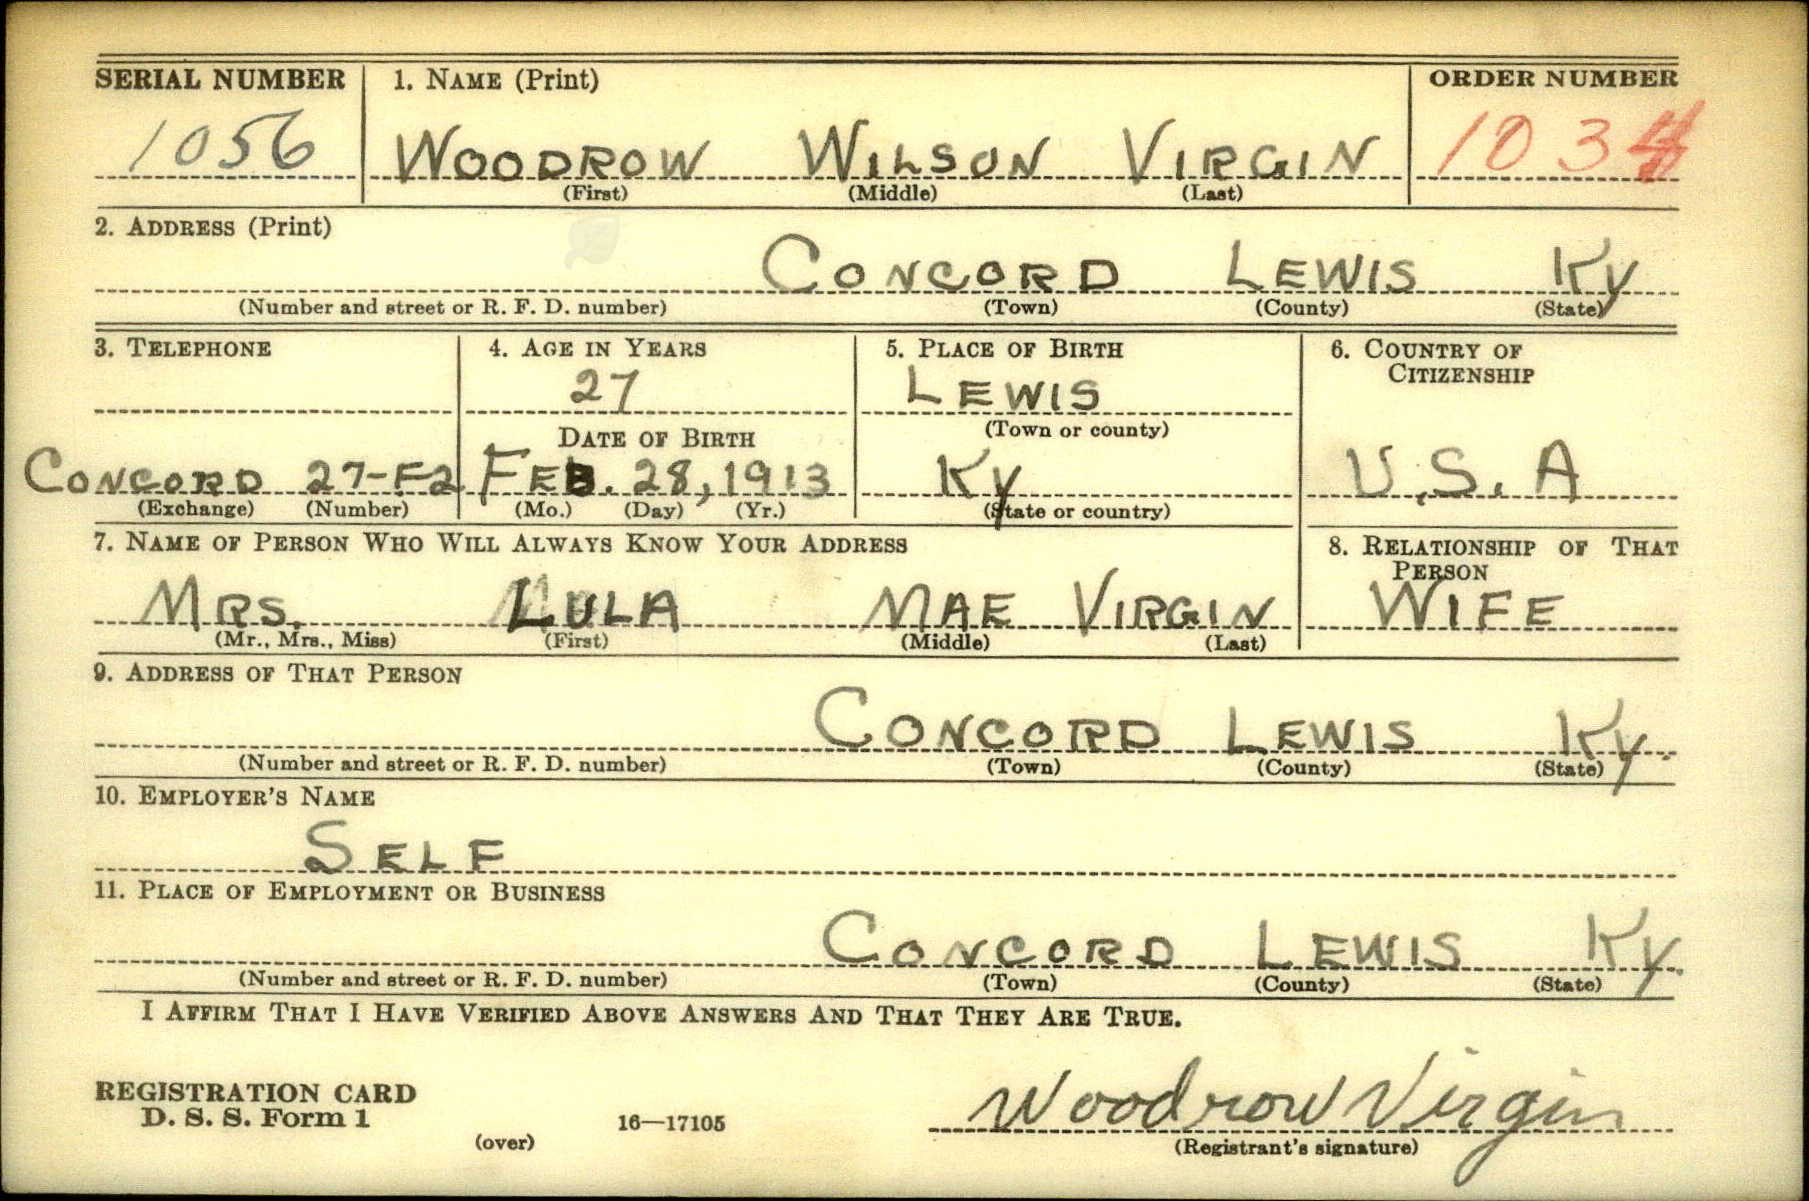 SERIAL NUMBER 1. NAME (Print) ORDER NUMBER
1056 WOODROW WILSON VIRGIN 1034
(First) (Middle) (Last)
2. ADDRESS (Print)
CONCORD LEWIS KY
(Number and street or R. F. D. number) (Town) (County) (State)
3. TELEPHONE 4. AGE IN YEARS 5. PLACE OF BIRTH 6. COUNTRY OF
CITIZENSHIP
27 LEWIS
DATE OF BIRTH (Town or county)
CONCORD 27-F2 FEB. 28, 1913 KY U.S.A
(Exchange) (Number) (Mo.) (Day) (Yr.) (State or country)
7. NAME OF PERSON WHO WILL ALWAYS KNOW YOUR ADDRESS 8. RELATIONSHIP OF THAT
PERSON
MRS. LULA MAE VIRGIN WIFE
(Mr., Mrs., Miss) (First) (Middle) (Last)
9. ADDRESS OF THAT PERSON
CONCORD LEWIS KY.
(Number and street or R. F. D. number) (Town) (County) (State)
10. EMPLOYER'S NAME
SELF
11. PLACE OF EMPLOYMENT OR BUSINESS
CONCORD LEWIS KY.
(Number and street or R. F. D. number) (Town) (County) (State)
I AFFIRM THAT I HAVE VERIFIED ABOVE ANSWERS AND THAT THEY ARE TRUE.
REGISTRATION CARD
D. S. S. Form 1 16—17105 Woodrow Virgin
(over) (Registrant's signature)